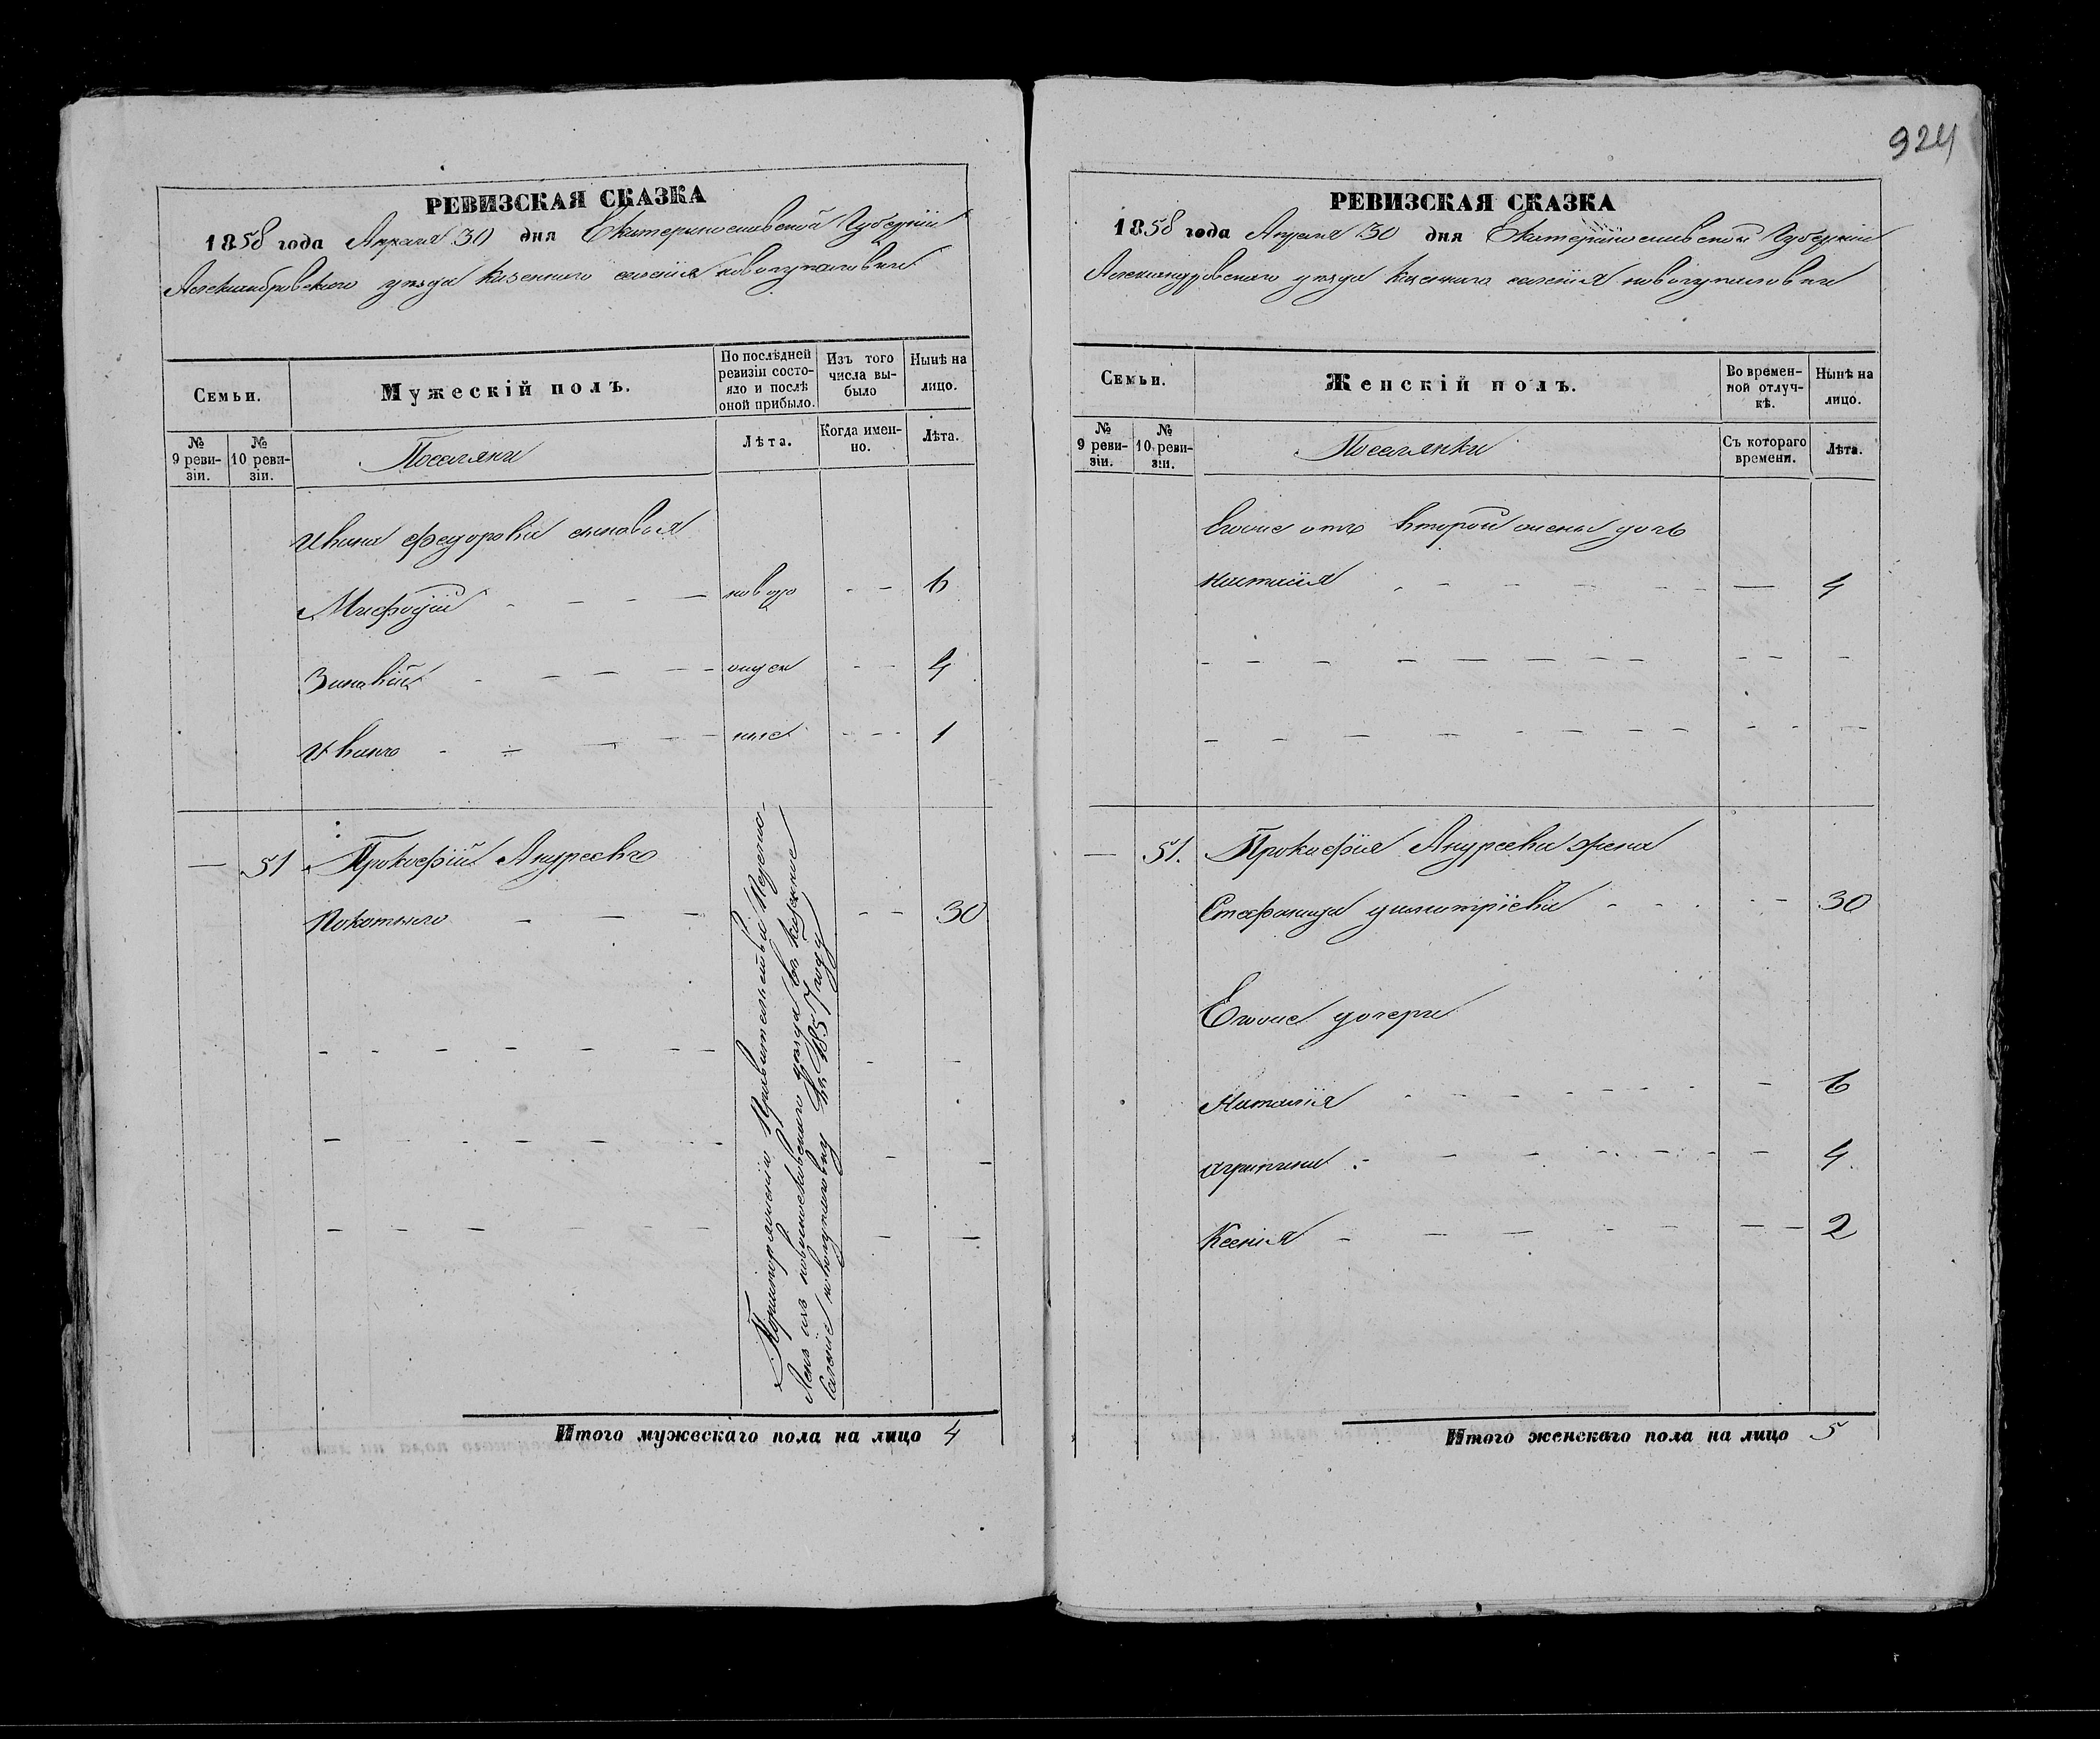 924
РЕВИЗСКАЯ СКАЗКА
1858 года Апреля 30 дня Екатеринославской Губернии
Александровского уезда казенного селения новогупаловки
Семьи.
Мужескій полъ.
По послѣдней ревизіи состояло и послѣ оной прибыло.
Изъ того числа выбыло
Нынѣ на лицо.
№ 9 ревизіи.
№ 10 ревизіи.
Поселяни
Лѣта.
Когда именно.
Лѣта.
Ивана Федорова сыновья
Мефодий - - - - новоро - - 6
Зиновій - - - - - - - 4
Иванъ - - - - - - - 1
— 51 Прокофій Андреевъ
Покотило - - - - - 30
селение новогупаловку въ 1857 году
Итого мужескаго пола на лицо 4
РЕВИЗСКАЯ СКАЗКА
1858 года Апреля 30 дня Екатеринославской Губернии
Александровского уезда казенного селения новогупаловки
Семьи.
Женскій полъ.
Во временной отлучкѣ.
Нынѣ на лицо.
№ 9 ревизіи.
№ 10 ревизіи.
Поселянки
Съ котораго времени.
Лѣта.
Егоже отъ второй жены дочь
- - - - - — 4
— 51. Прокофия Андреева жена
Стефанида димитрієва - - - - 30
Егоже дочери
Наталия - - - - - - 6
агрипина - - - - - - 4
Ксения - - - - - - 2
Итого женскаго пола на лицо 5